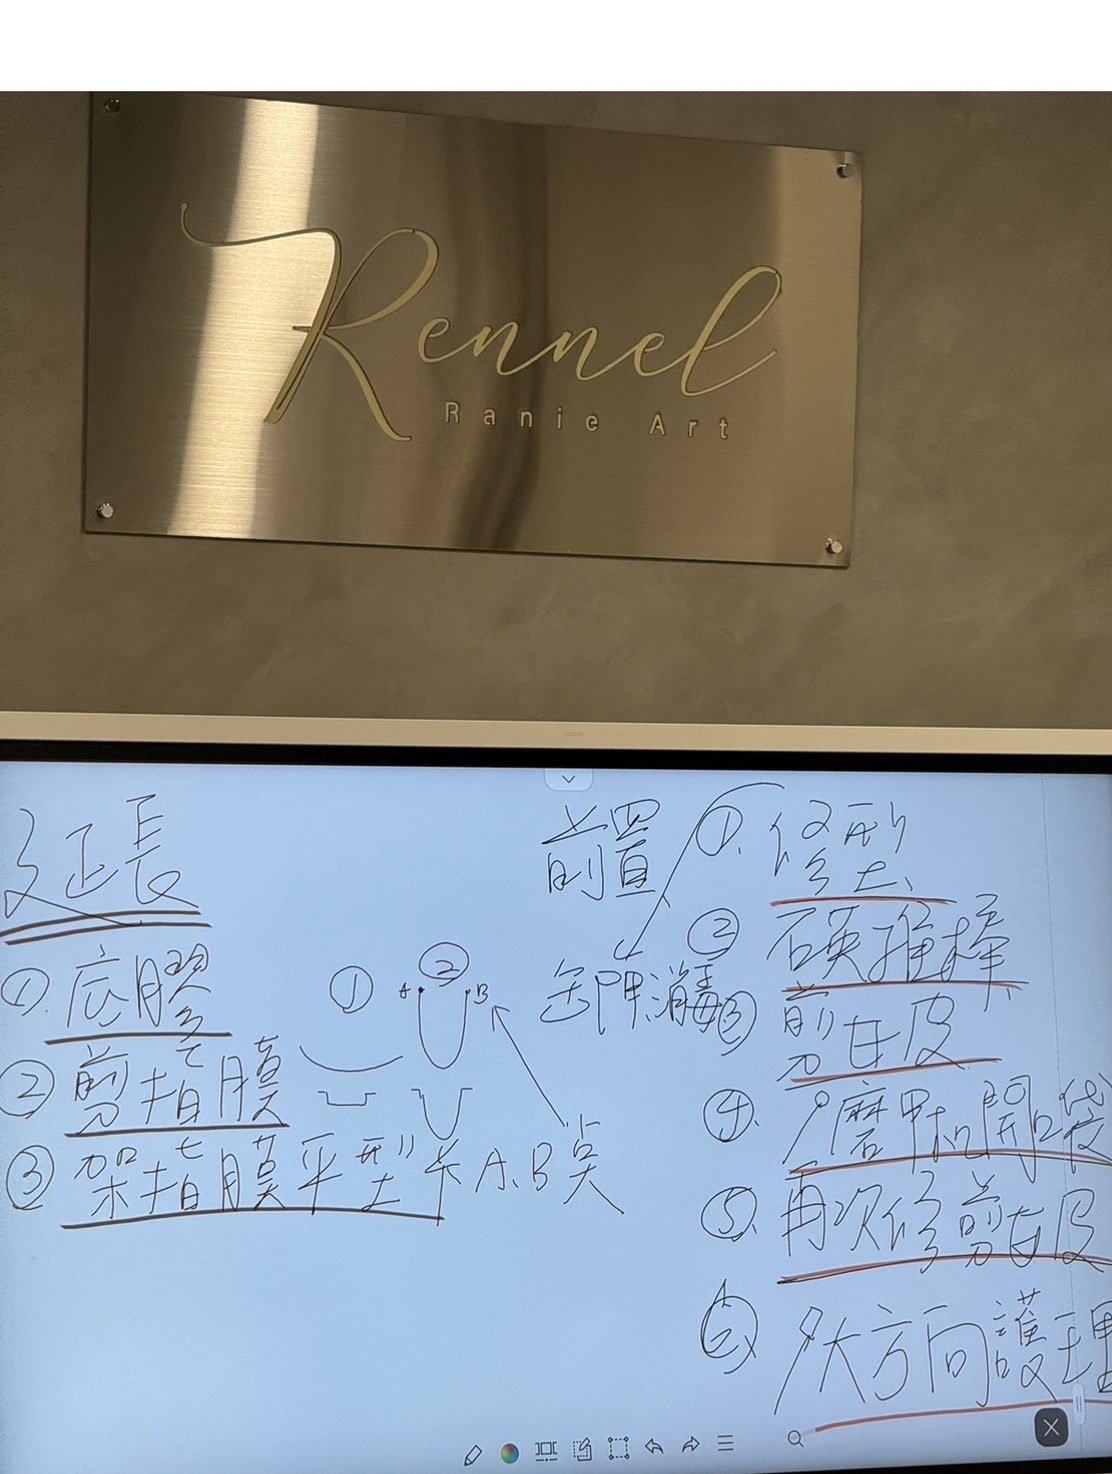 Rennel
Ranie Art
延長
① 底膠
② 剪指膜
③ 架指膜平型卡A.B點
①
②
A
B
前置
①. 修型
② 硬推棒
③ 剪甘皮
④. 磨甲机開口袋
⑤. 再次修剪甘皮
⑥ 大方向護理
消毒